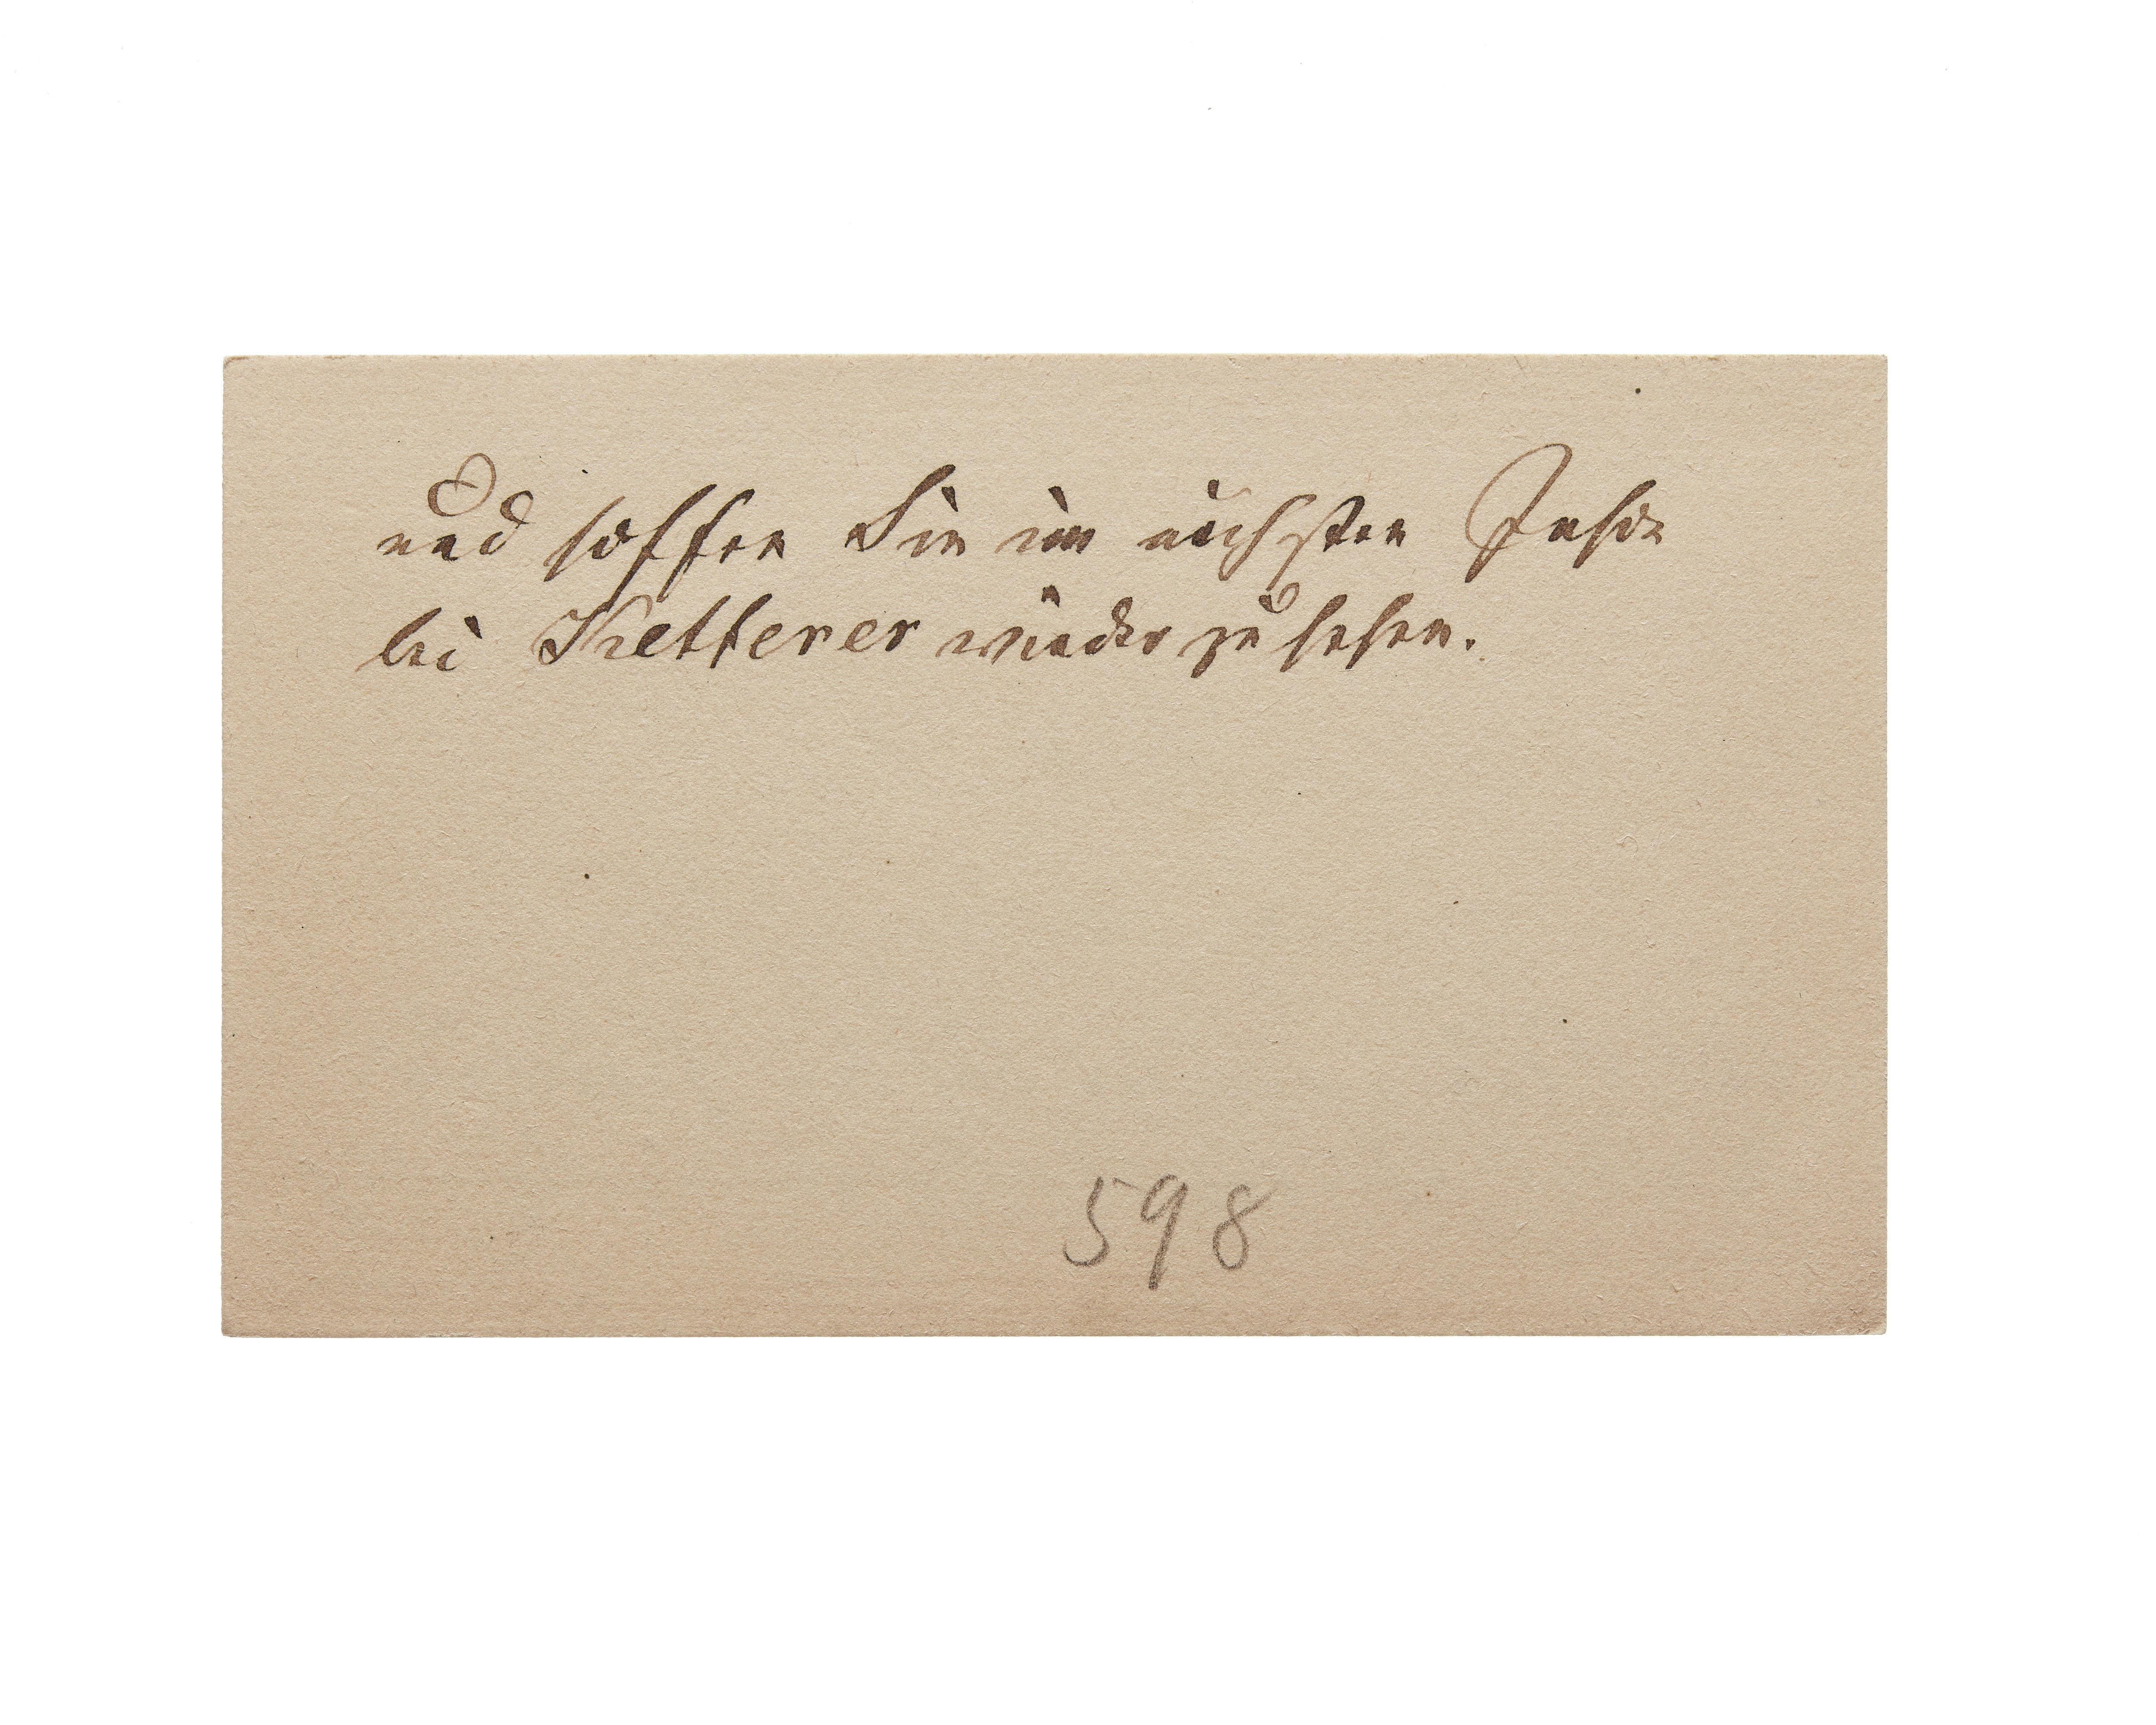 und hoffen Sie im nächsten Jahre
bei Ketterer wieder zu sehen.
598